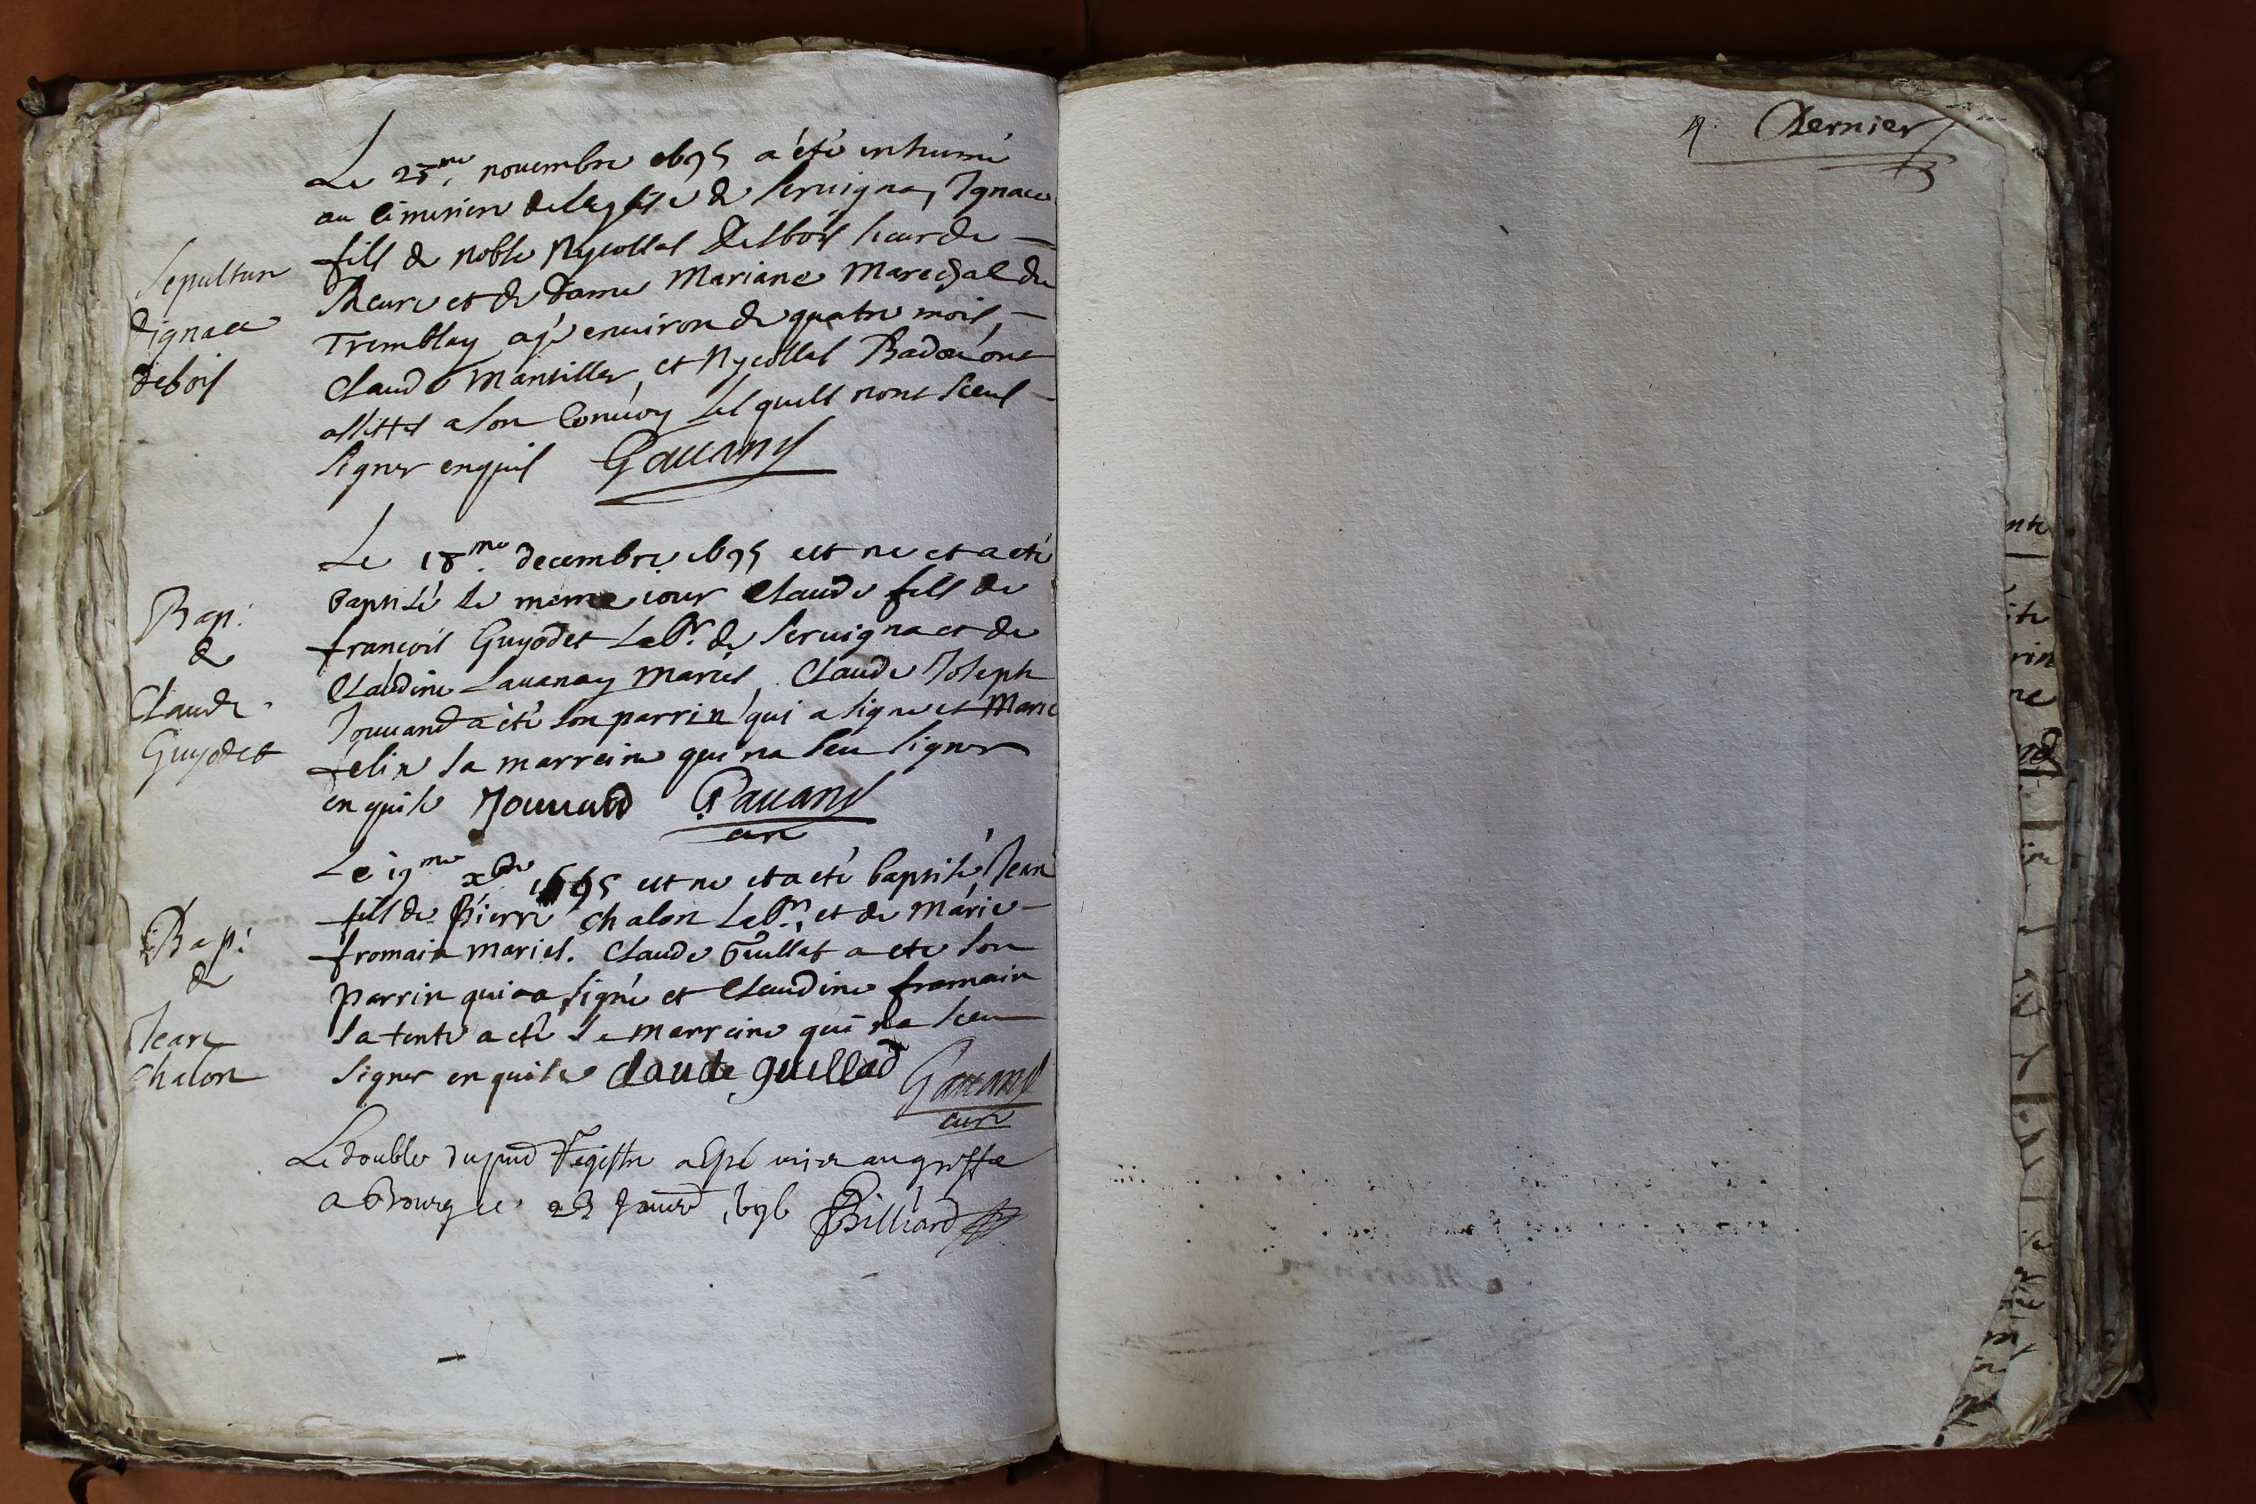 Sepulture
dignace
debois
Le 25.me nouembre 1695 a été inhumé
au cimetiere de leglise de Seruigna, Ignace
fils de noble Nycollas Desbois sieur de
et de dame Mariane Marechal du
Tremblay agé enuiron de quatre mois,
Claude Mantiller et Nycollas Badoú ont
assistes a son Conuoy lesquels nont sceus
signer enquis Gauand
Bap.
de
Claude
Guyodet
Le 18.me decembre 1695 est ne et a eté
baptisé le meme iour Claude fils de
françois Guyodet Lab.r de Seruigna et de
Claudine Lauanay mariés, Claude Joseph
Jouuand a été son parrin qui a signe et Marie
felix sa marreine qui na seu signer
enquise Jouuand Gauand
cure
Bap.
de
Jean
chalon
Le 19me xbre 1695 est ne et a eté baptisé Jean
fils de Pierre chalon Lab.r, et de Marie
fromain mariés. Claude Guillat a ete son
parrin qui a signé et Claudine fromain
sa tente a eté sa marreine qui na sceu
signer enquise claude guillad Gauand
cure
Le double du pnt Registre a esté mis au greffe
a Bourg le 23 Januer 1696 Billiard
n. Dernier